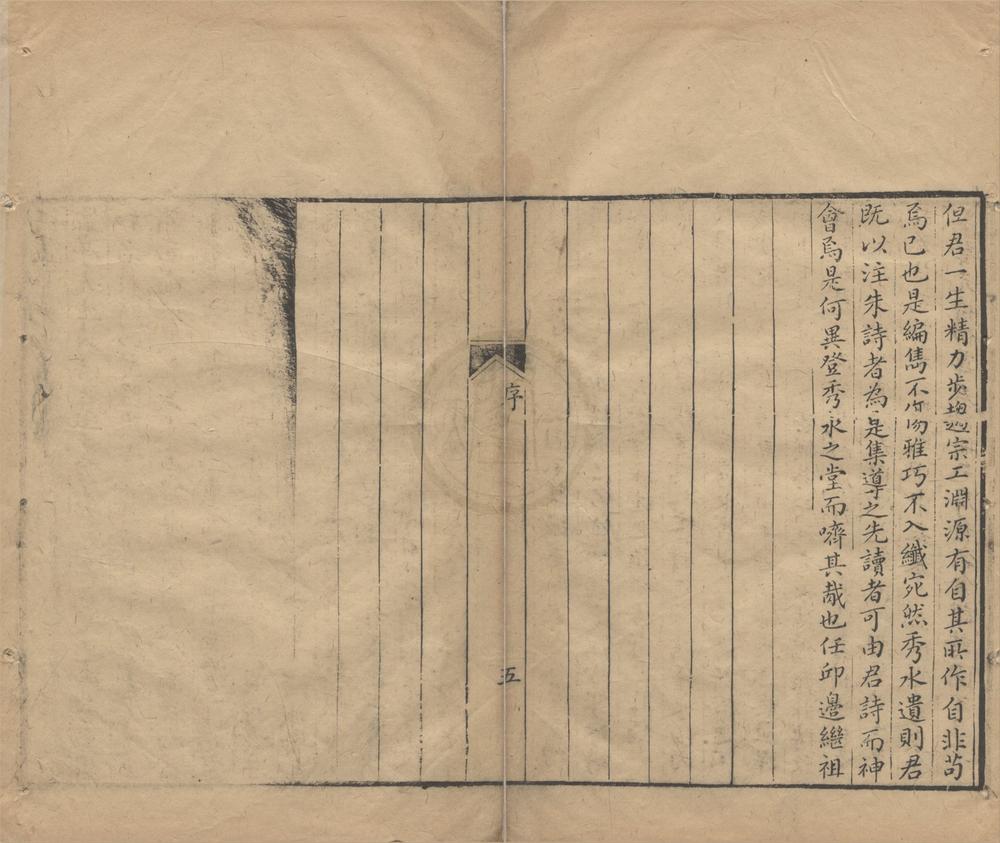 但君一生精力步趨宗工淵源有自其所作自非苟
焉已也是編雋不傷雅巧不入纖宛然秀水遺則君
既以注朱詩者為是集導之先讀者可由君詩而神
會焉是何異登秀水之堂而嚌其胾也任邱邊繼祖
序
五